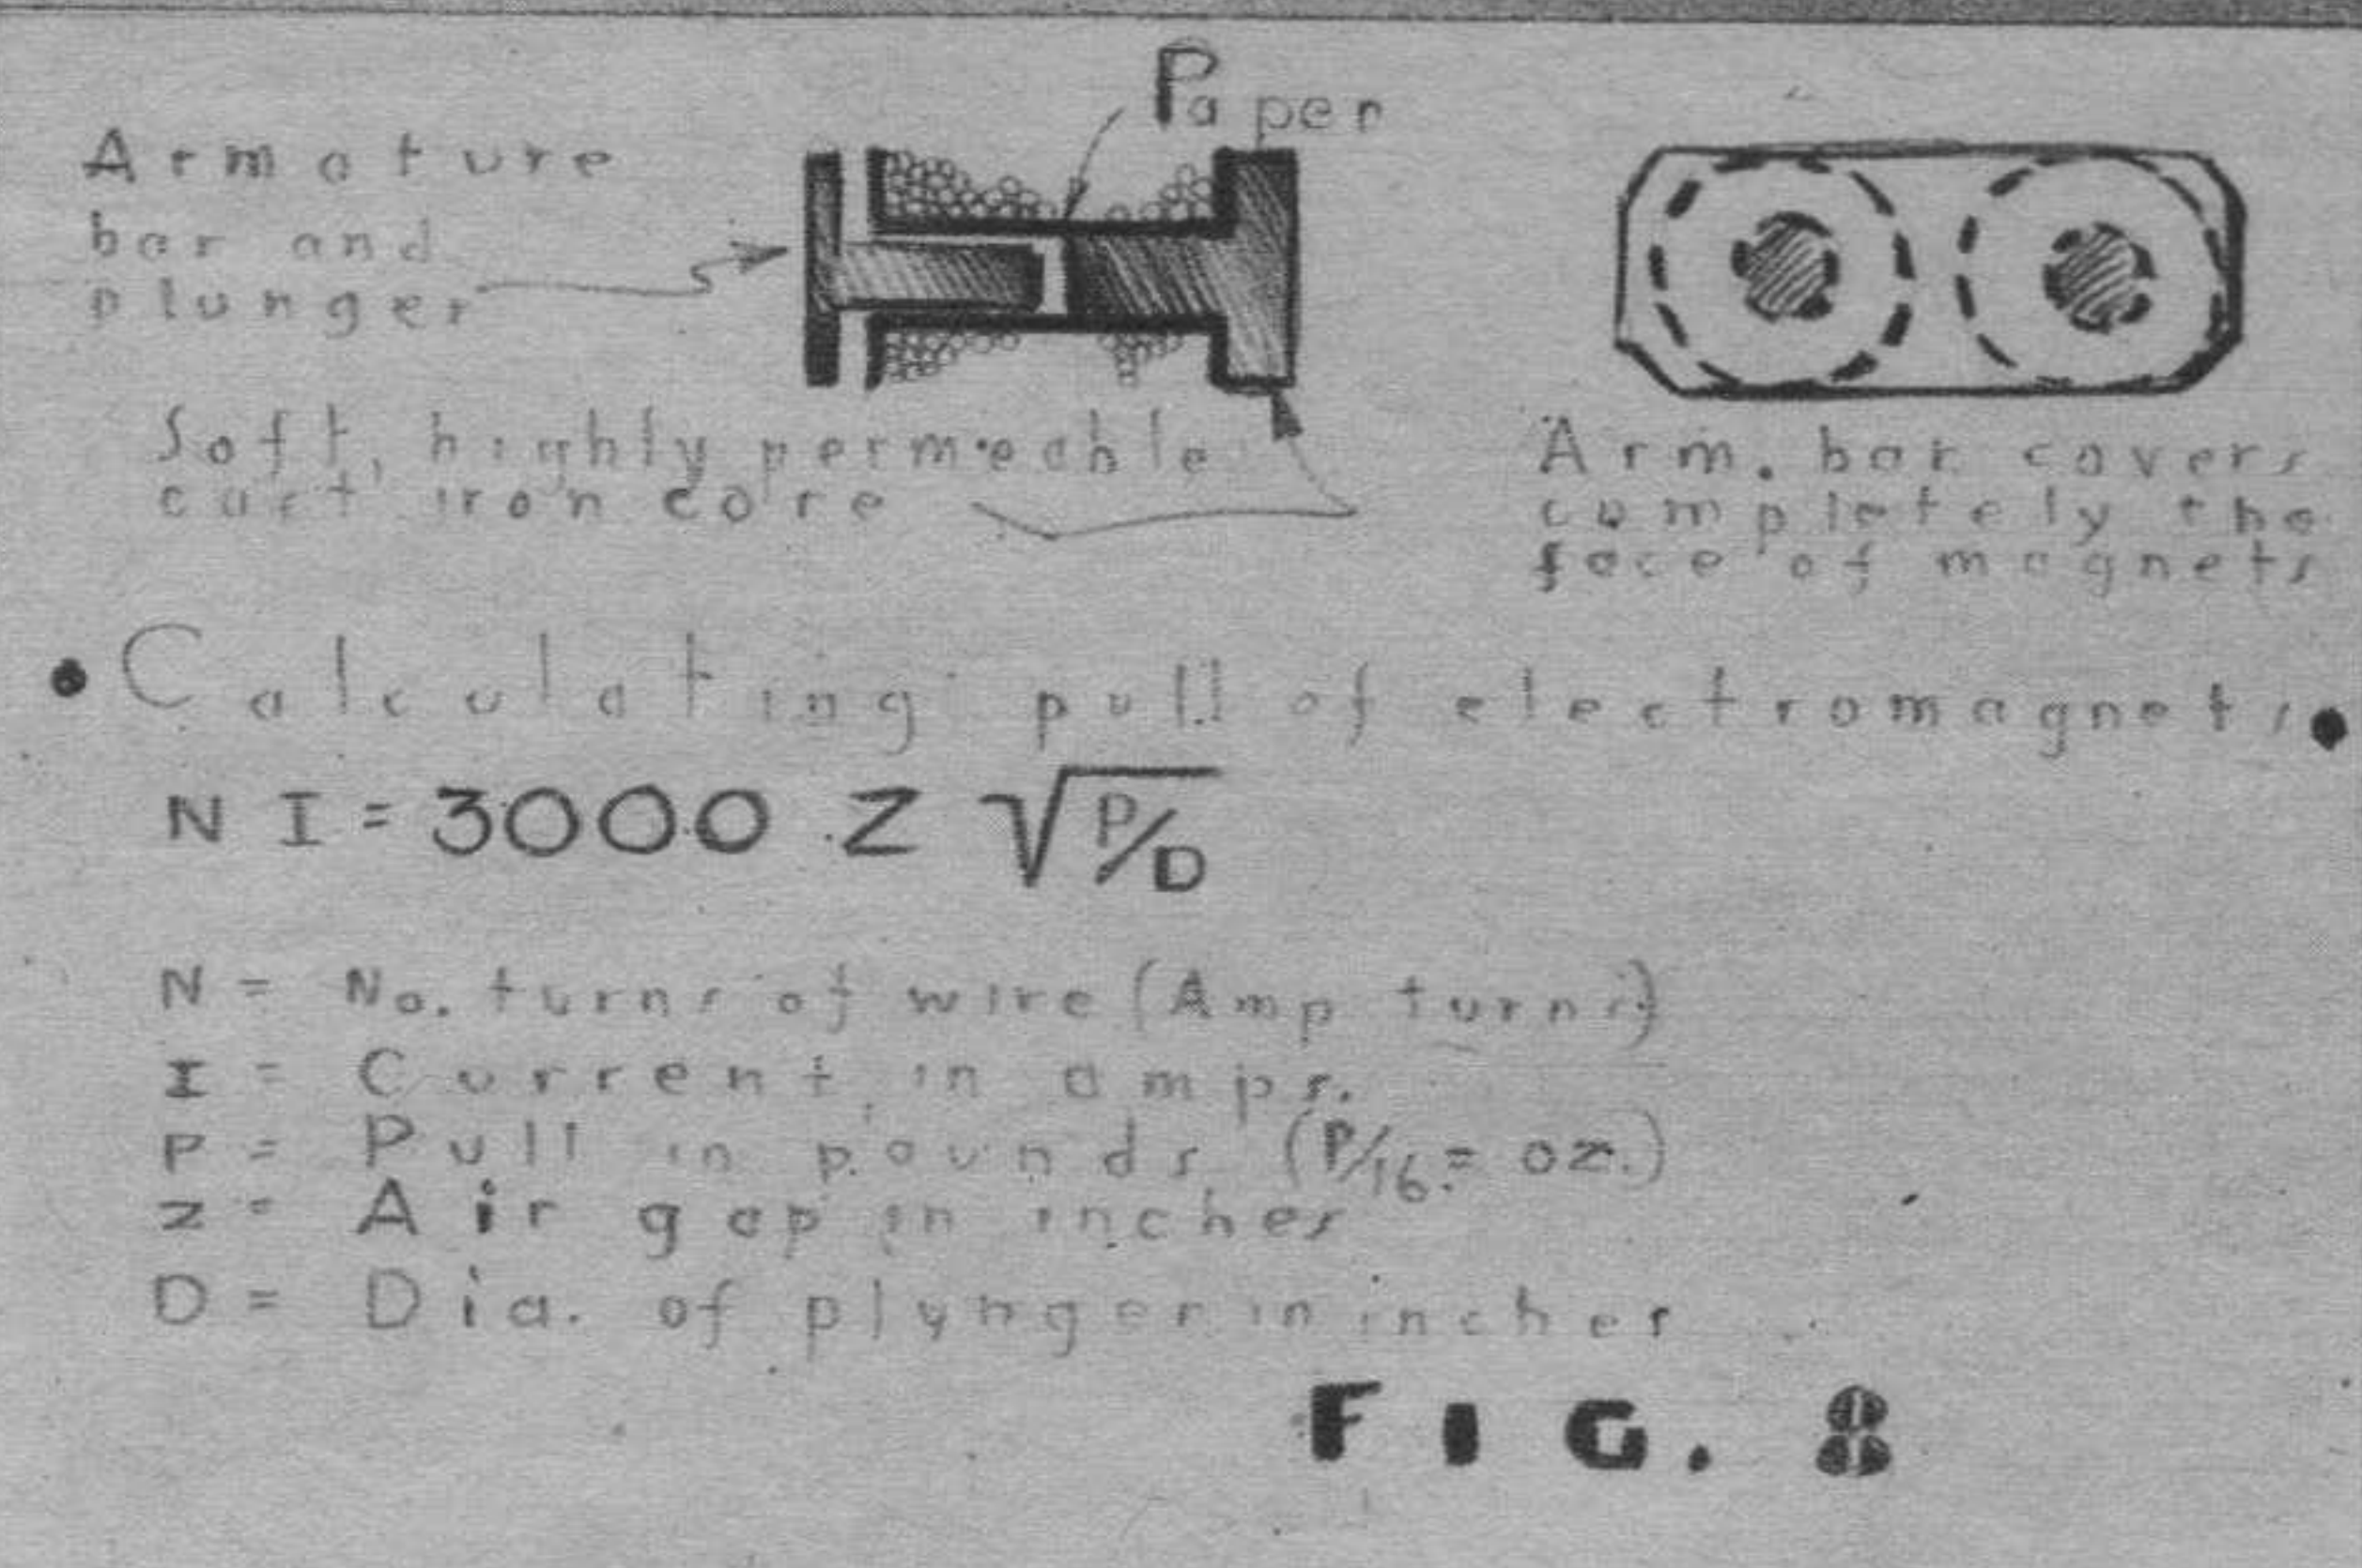 Paper
Armature
bar and
plunger
Soft, highly permeable
cast iron core
Arm. bar covers
completely the
face of magnets
• Calculating pull of electromagnets •
N I = 3000 Z √P/D
N = No. turns of wire (Amp turns)
I = Current in amps.
P = Pull in pounds (P/16 = oz.)
Z = Air gap in inches
D = Dia. of plunger in inches
FIG. 8